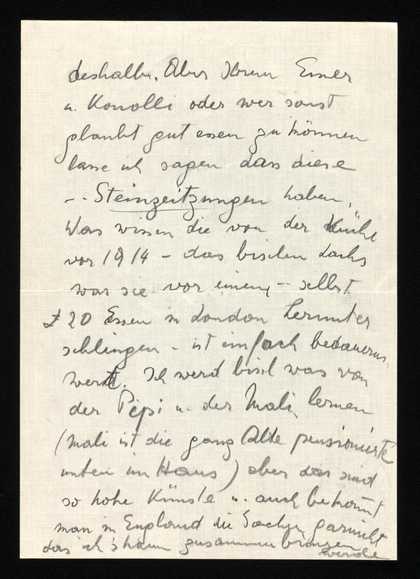 deshalb. Aber Herrn Esner
u. Konolli oder wer sonst
glaubt gut essen zu können
lasse ich sagen dass diese
-- Steinzeitzungen haben,
Was wissen die von der Küche
vor 1914 - das bischen Lachs
was sie vor einem - selbst
£20 Essen in London herunter
schlingen - ist einfach bedauerns
wert. Ich werd bissl was von
der Pepi u. der Mali lernen
(Mali ist die ganz Alte pensionierte
unten im Haus) aber das sind
so hohe Künste u. auch bekommt
man in England die Sachen garnicht
das ich's kaum zusammen bringen
werde